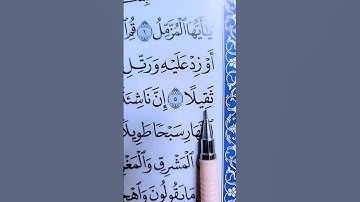 يَٰٓأَيُّهَا ٱلْمُزَّمِّلُ ١ قُمِ
أَوْ زِدْ عَلَيْهِ وَرَتِّلِ
ثَقِيلًا ٥ إِنَّ نَاشِئَةَ
سَبْحًا طَوِيلًا
ٱلْمَشْرِقِ وَٱلْمَغْرِبِ
مَا يَقُولُونَ وَٱهْجُرْ